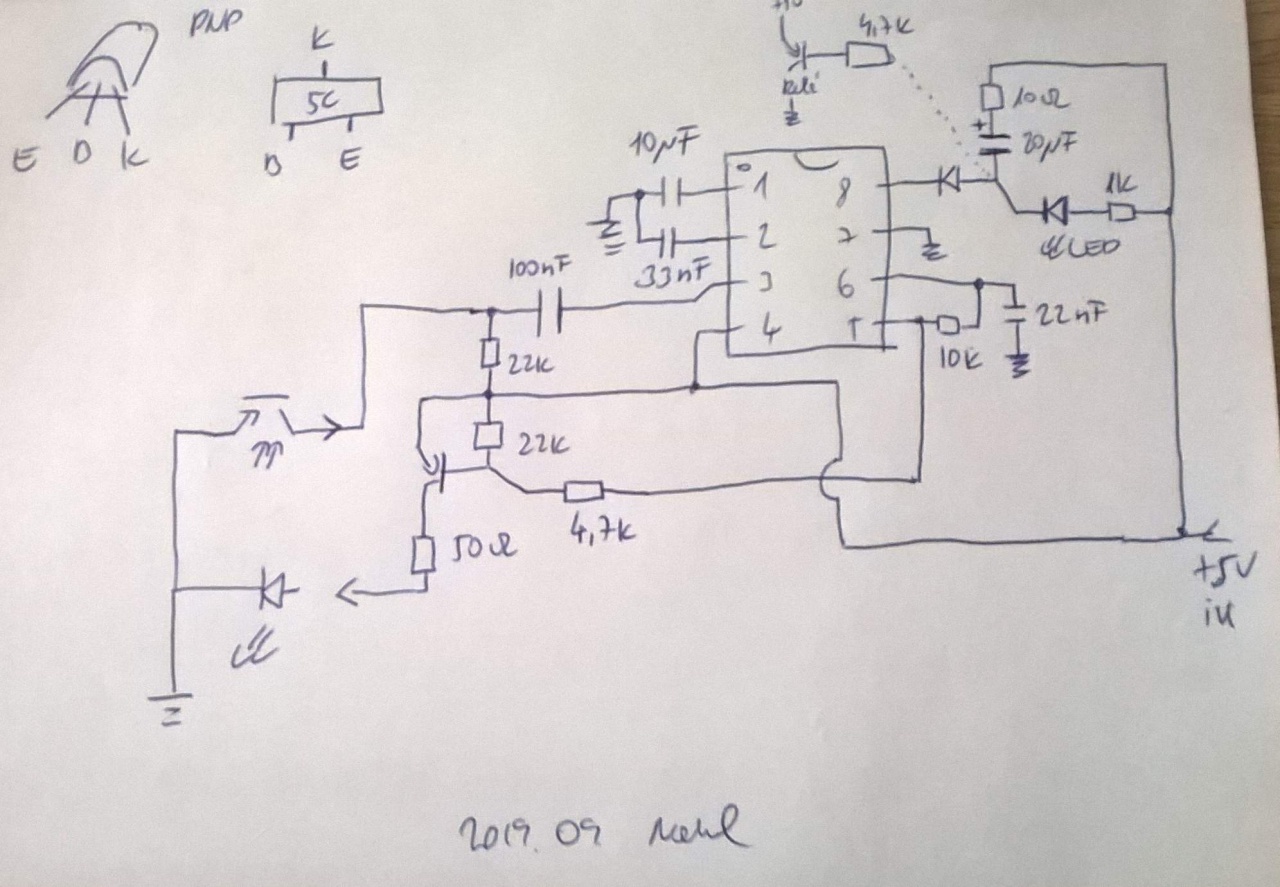 PNP
K
5C
E B K
B E
4,7K
Relé
10Ω
+
20µF
1K
LED
10µF
33nF
100nF
1
2
3
4
8
7
6
5
22nF
10K
22K
22K
4,7K
50Ω
+5V
in
2019. 09